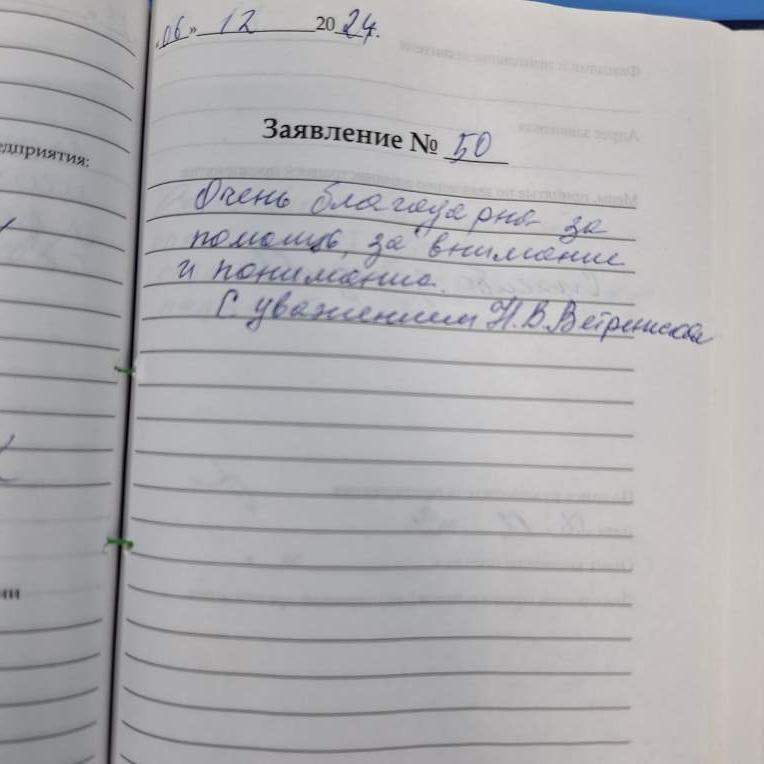 «06» 12 2024.
едприятия:
Заявление № 50
Очень благодарна за
помощь, за внимание
и понимание.
С уважением Н.В.
ии